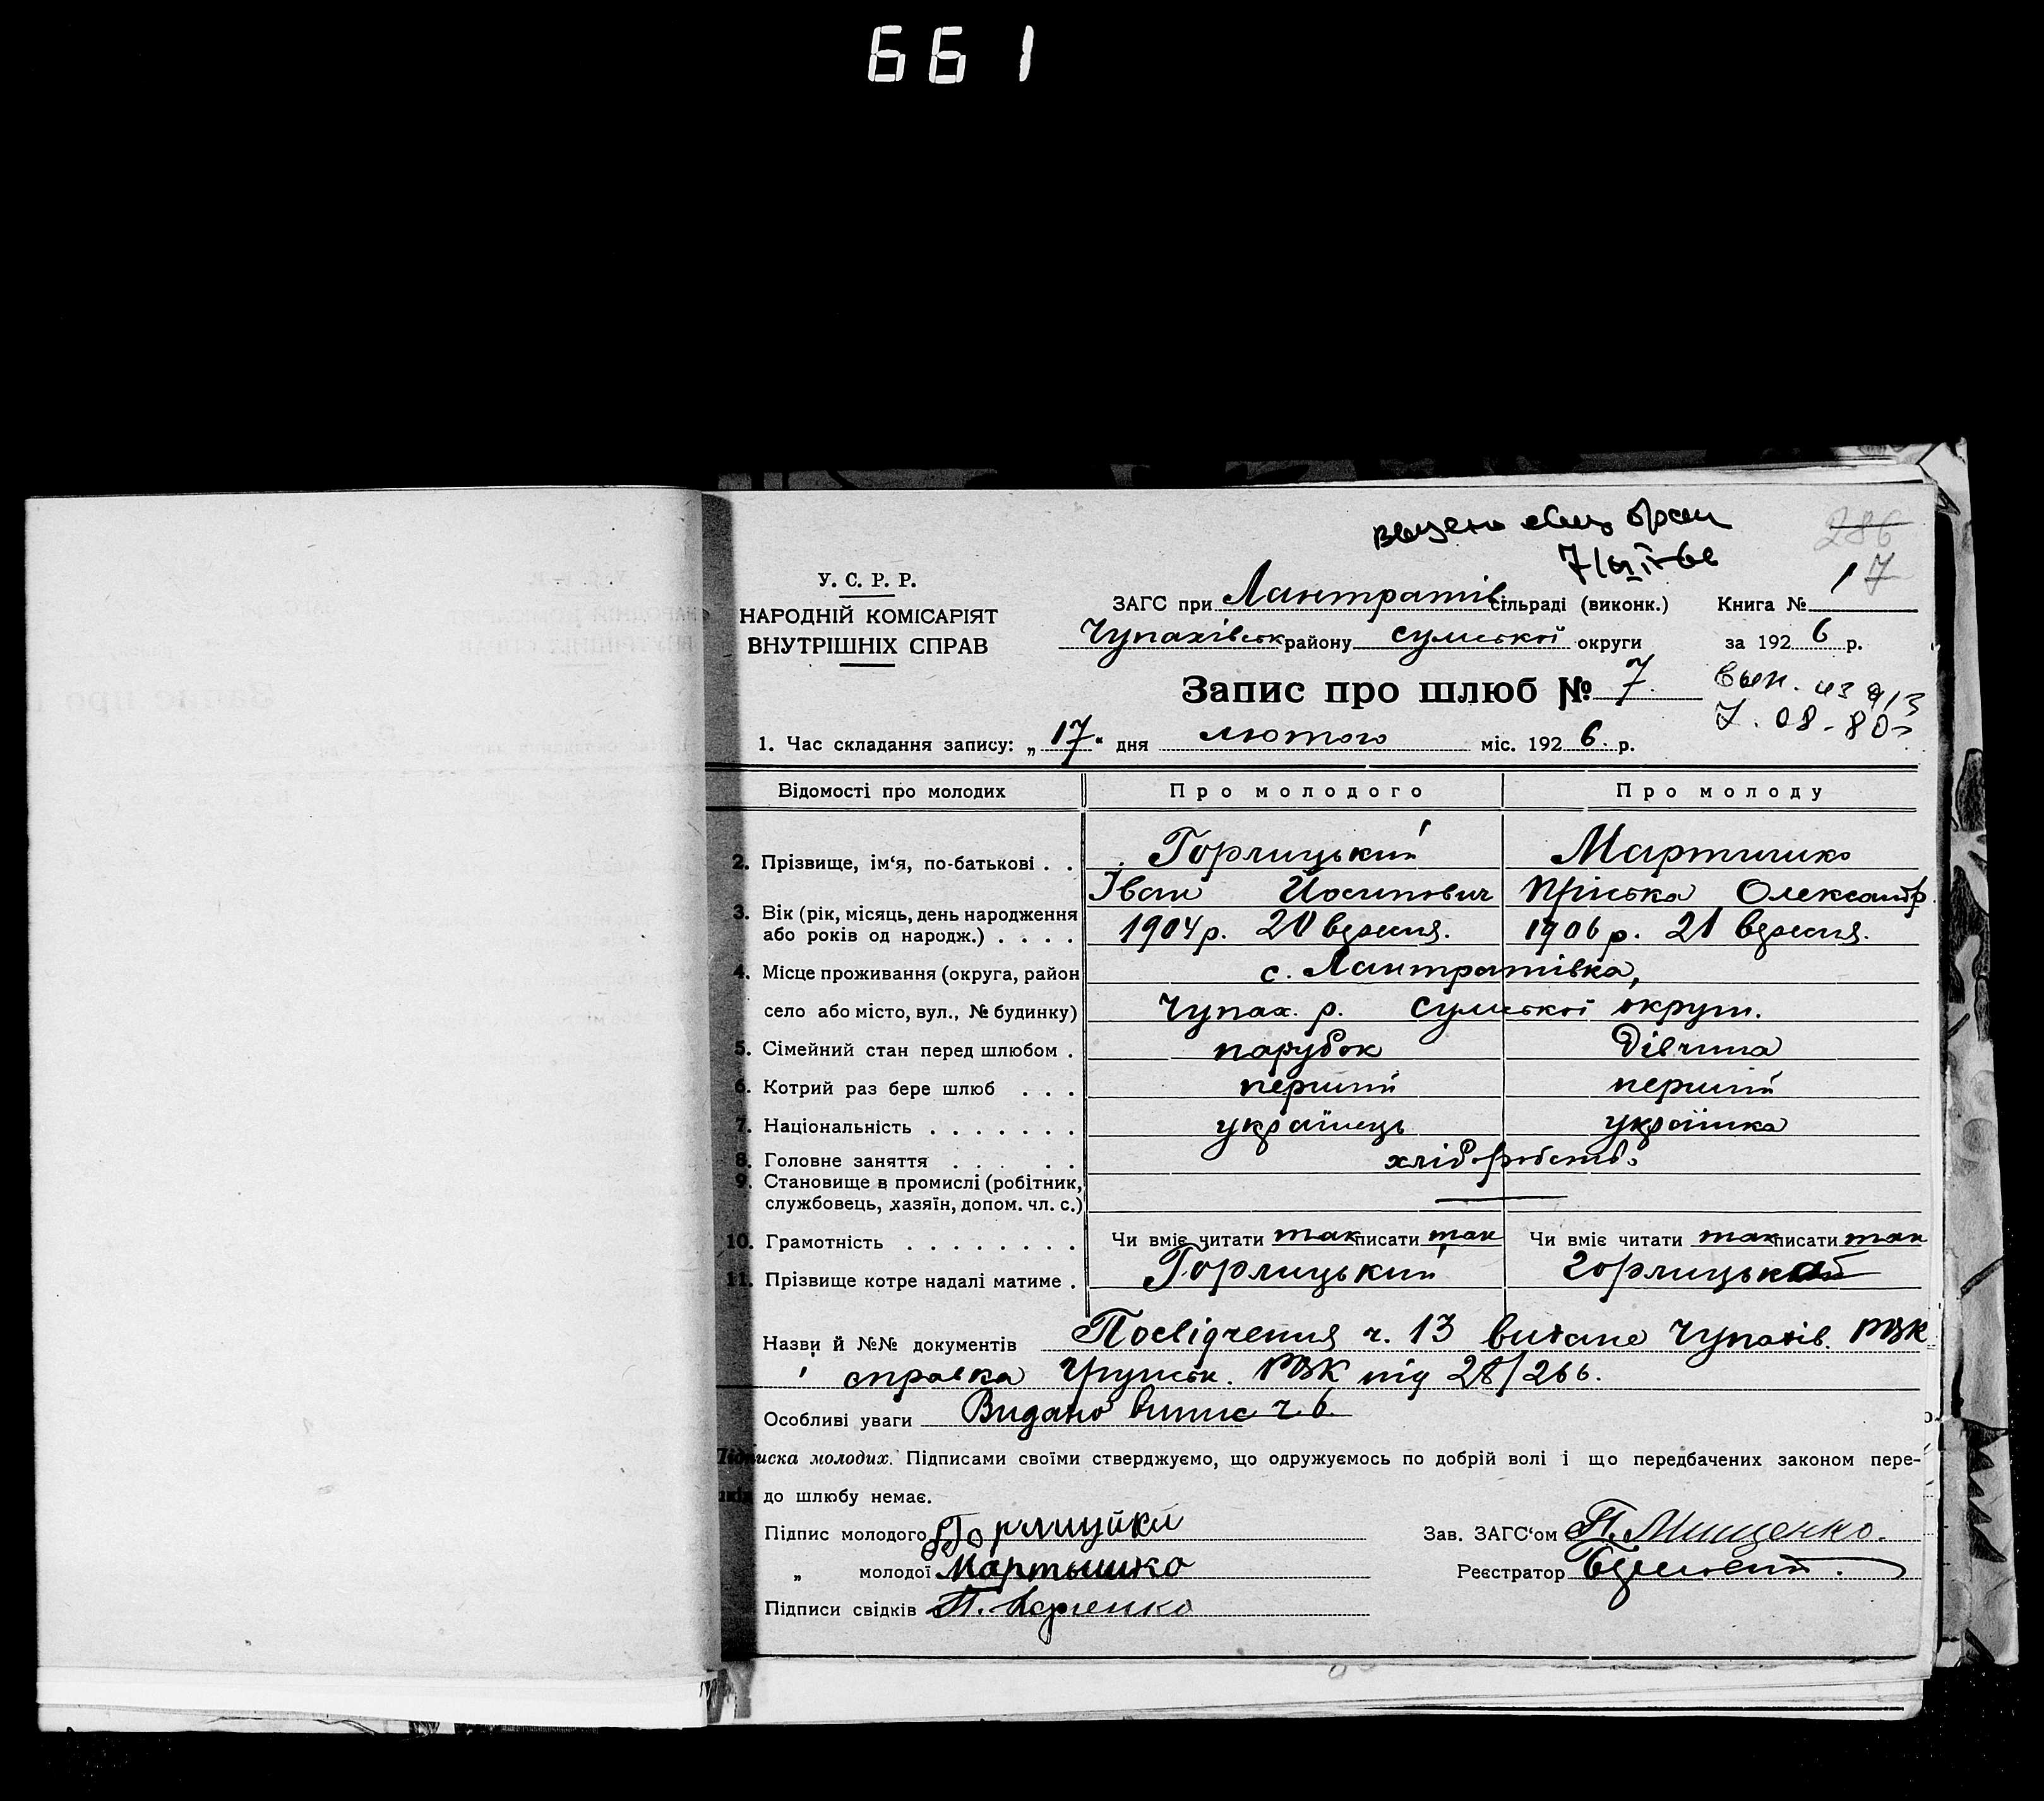 661
286
7/VIII-66
7
У. С. Р. Р.
НАРОДНІЙ КОМІСАРІЯТ
ВНУТРІШНІХ СПРАВ
ЗАГС при Лантратів сільраді (виконк.) Книга № 1
Чупахівськ району сумської округи за 1926 р.
Запис про шлюб № 7.
7. 08-80
1. Час складання запису: „17“ дня лютого міс. 1926. р.
Відомості про молодих Про молодого Про молоду
2. Прізвище, ім‘я, по-батькові . . Горлицький Мартишко
Іван Йосипович Пріська Олександр
3. Вік (рік, місяць, день народження
або років од народж.) . . . . 1904 р. 20 вересня. 1906 р. 21 вересня.
4. Місце проживання (округа, район с. Лантратівка,
село або місто, вул., № будинку) Чупах. р. сумської округи.
5. Сімейний стан перед шлюбом . парубок дівчина
6. Котрий раз бере шлюб . . . перший перший
7. Національність . . . . . . . українець українка
8. Головне заняття . . . . . хліборобство
9. Становище в промислі (робітник,
службовець, хазяїн, допом. чл. с.)
10. Грамотність . . . . . . . . Чи вміє читати так писати так Чи вміє читати так писати так
11. Прізвище котре надалі матиме . Горлицький Горлицькай
Назви й №№ документів Посвідчення ч. 13 видане Чупахів. РВК
і справка Грунськ. РВК під 28/266.
Особливі уваги Видано випис ч. 6
Підписка молодих. Підписами своїми стверджуємо, що одружуємось по добрій волі і що передбачених законом пере-
шкід до шлюбу немає.
Підпис молодого Горлицйки Зав. ЗАГС‘ом П. Мищенко.
„ молодої Мартышко Реєстратор
Підписи свідків П.